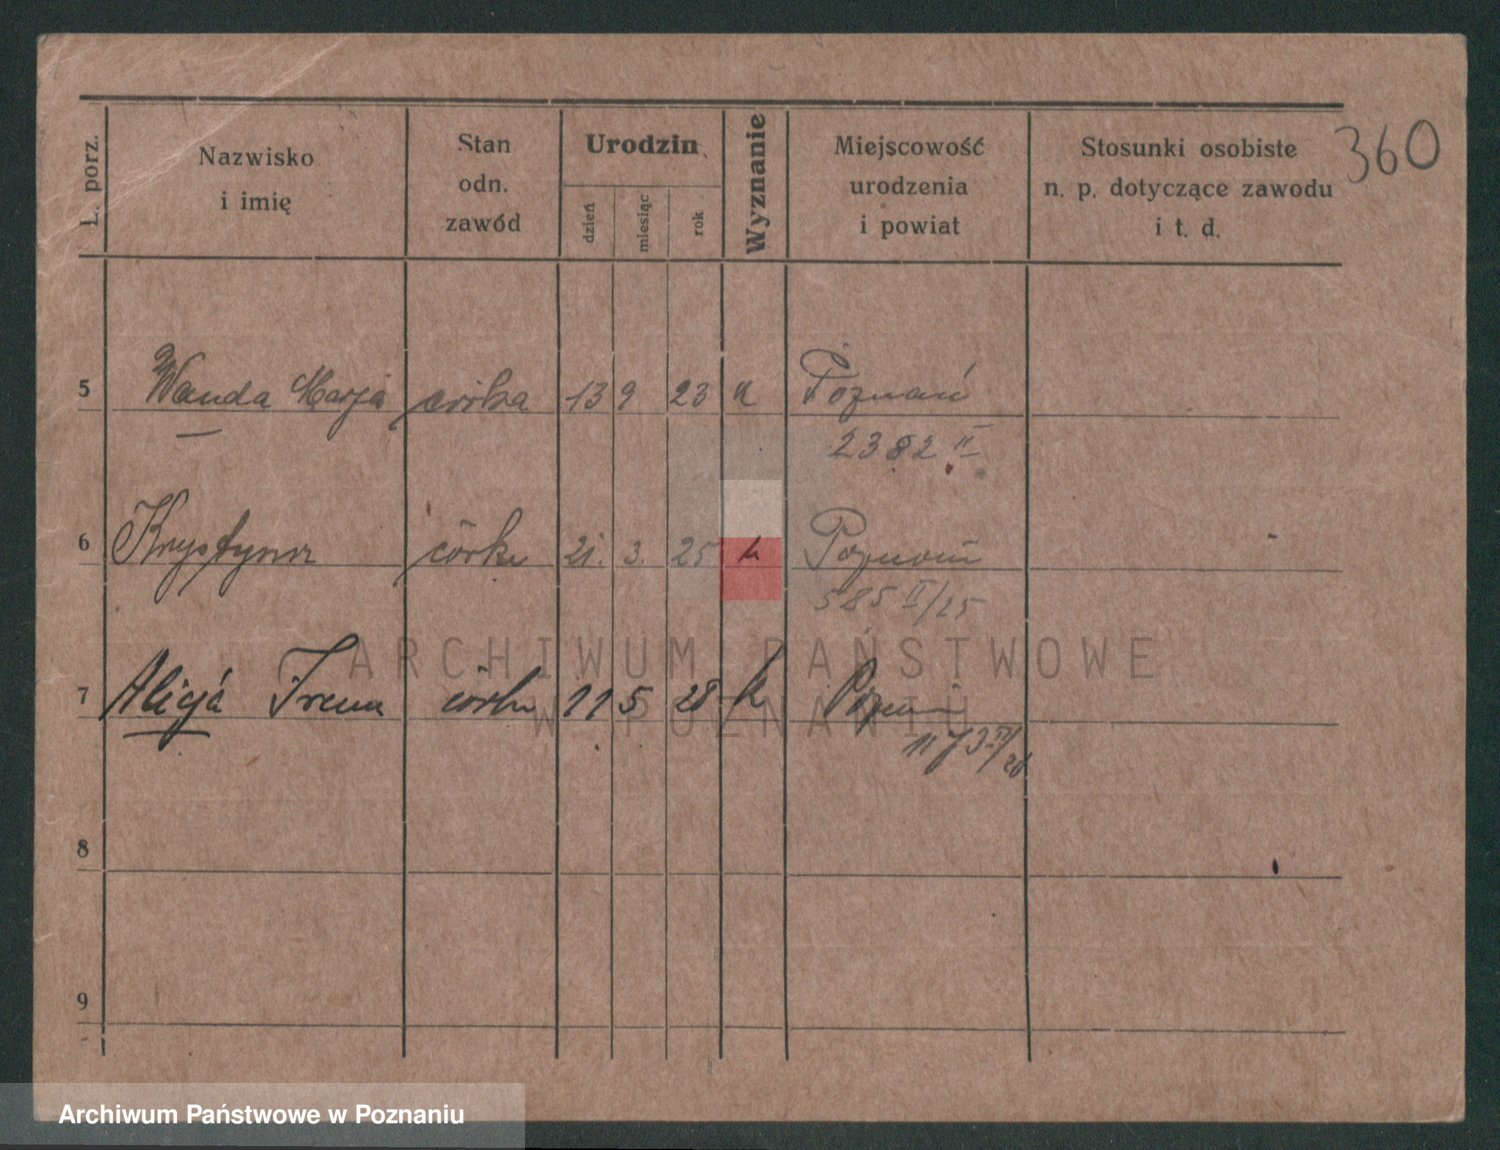 360
L. porz. Nazwisko i imię Stan odn. zawód Urodzin dzień miesiąc rok Wyznanie Miejscowość urodzenia i powiat Stosunki osobiste n. p. dotyczące zawodu i t. d.
5 Wanda Marja córka 13 9 23 k Poznań
2382 II
6 Krystyna córka 21. 3. 25 k Poznań
585 II/25
ARCHIWUM PAŃSTWOWE
7 Alicja Irena córka 11 5 28 k Poznań
W POZNANIU
1173 II/28
8
9
Archiwum Państwowe w Poznaniu